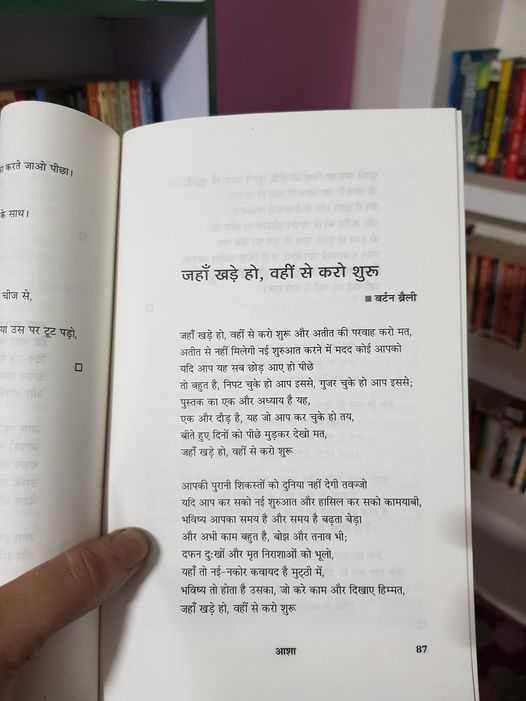 करते जाओ पीछा।
के साथ।
चीज से,
या उस पर टूट पड़ो,
जहाँ खड़े हो, वहीं से करो शुरू
बर्टन ब्रैली
जहाँ खड़े हो, वहीं से करो शुरू और अतीत की परवाह करो मत,
अतीत से नहीं मिलेगी नई शुरुआत करने में मदद कोई आपको
यदि आप यह सब छोड़ आए हो पीछे
तो बहुत है, निपट चुके हो आप इससे, गुजर चुके हो आप इससे;
पुस्तक का एक और अध्याय है यह,
एक और दौड़ है, यह जो आप कर चुके हो तय,
बीते हुए दिनों को पीछे मुड़कर देखो मत,
जहाँ खड़े हो, वहीं से करो शुरू
आपकी पुरानी शिकस्तों को दुनिया नहीं देगी तवज्जो
यदि आप कर सको नई शुरुआत और हासिल कर सको कामयाबी,
भविष्य आपका समय है और समय है बढ़ता बेड़ा
और अभी काम बहुत है, बोझ और तनाव भी;
दफन दु:खों और मृत निराशाओं को भूलो,
यहाँ तो नई-नकोर कवायद है मुट्ठी में,
भविष्य तो होता है उसका, जो करे काम और दिखाए हिम्मत,
जहाँ खड़े हो, वहीं से करो शुरू
आशा 87